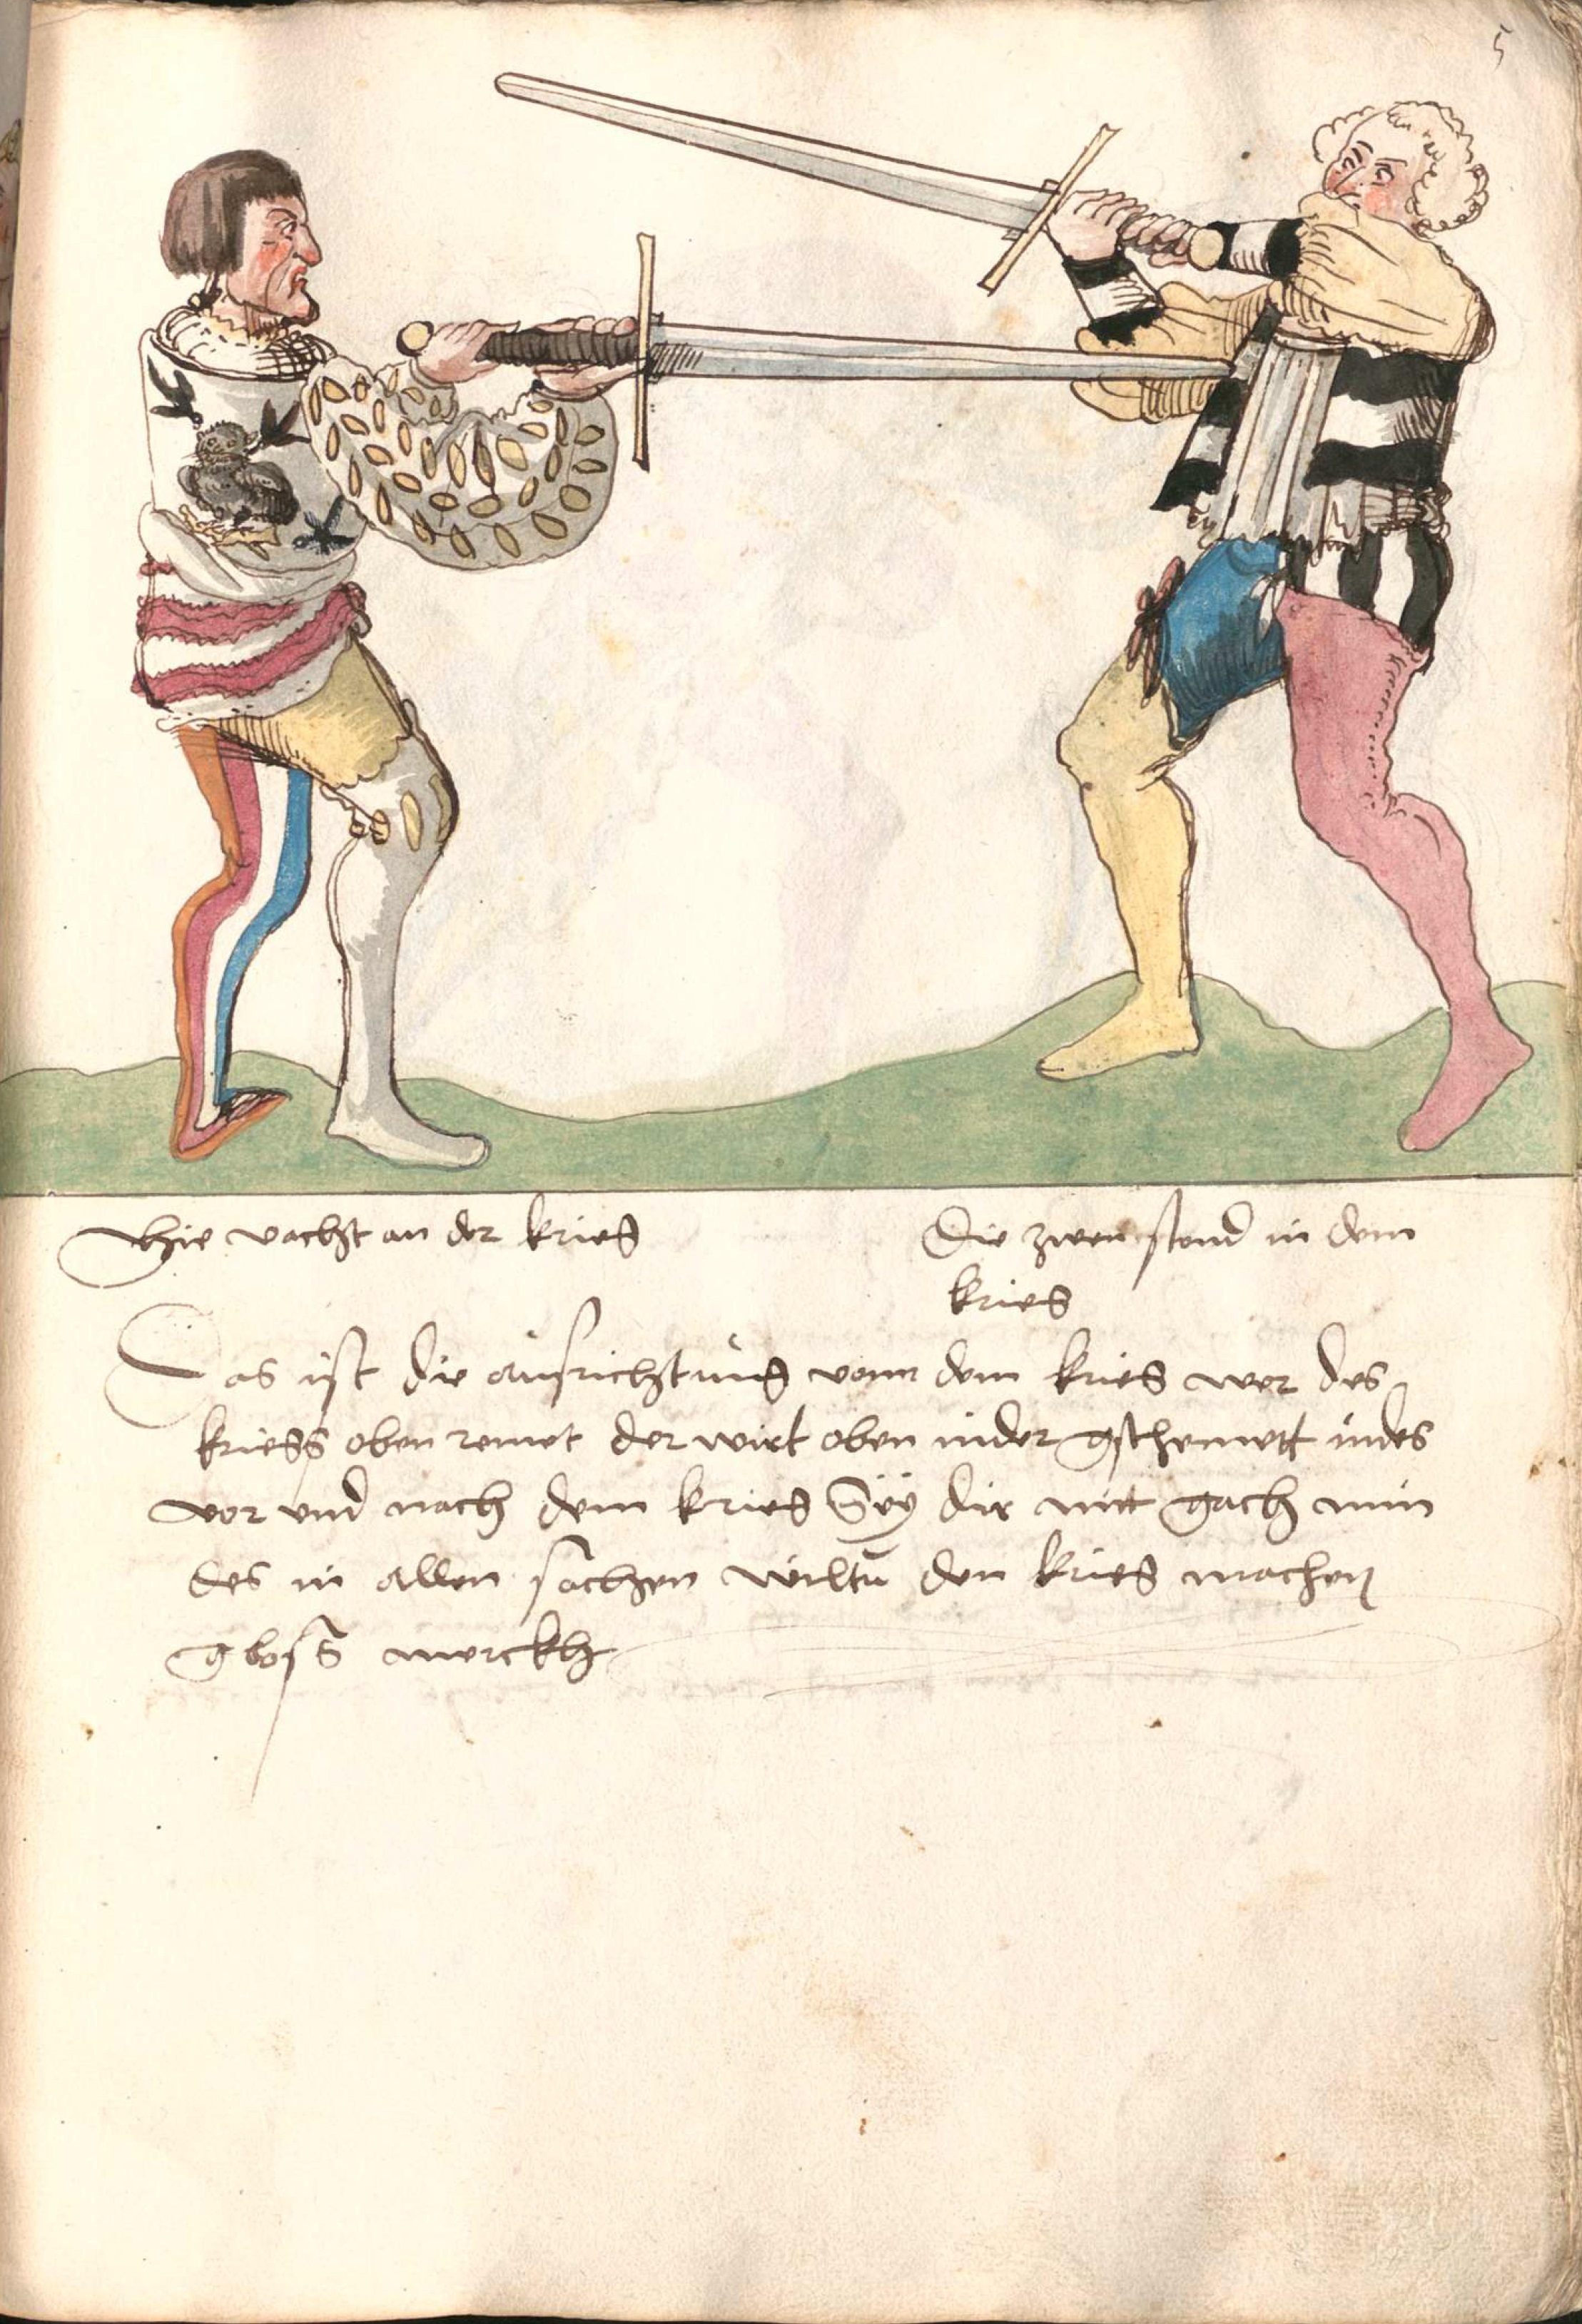 5
Hie vacht an der krieg
Die zwen stond in dem
krieg
Das ist die ausrichtung vonn dem krieg wer des
kriegs oben remet der wirt oben nider gschemett indes
vor und nach dem krieg sey dir nitt gach nim
des in allen sachen wiltu den krieg machen
gloss merckh